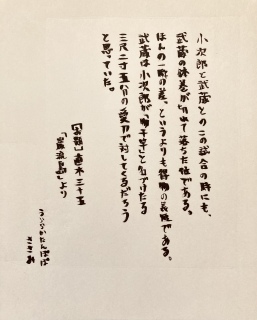 小次郎と武蔵とのこの試合の時にも、
武蔵の鉢巻が切れて落ちた位である。
ほんの一瞬の差、というよりも得物の長短である。
武蔵は小次郎が、「物干竿」と名づけたる
三尺二寸五分の愛刀で対してくるだろう
と思っていた。
【お題】直木三十五
「巌流島」より
うらなかたんぽぽ
ささお